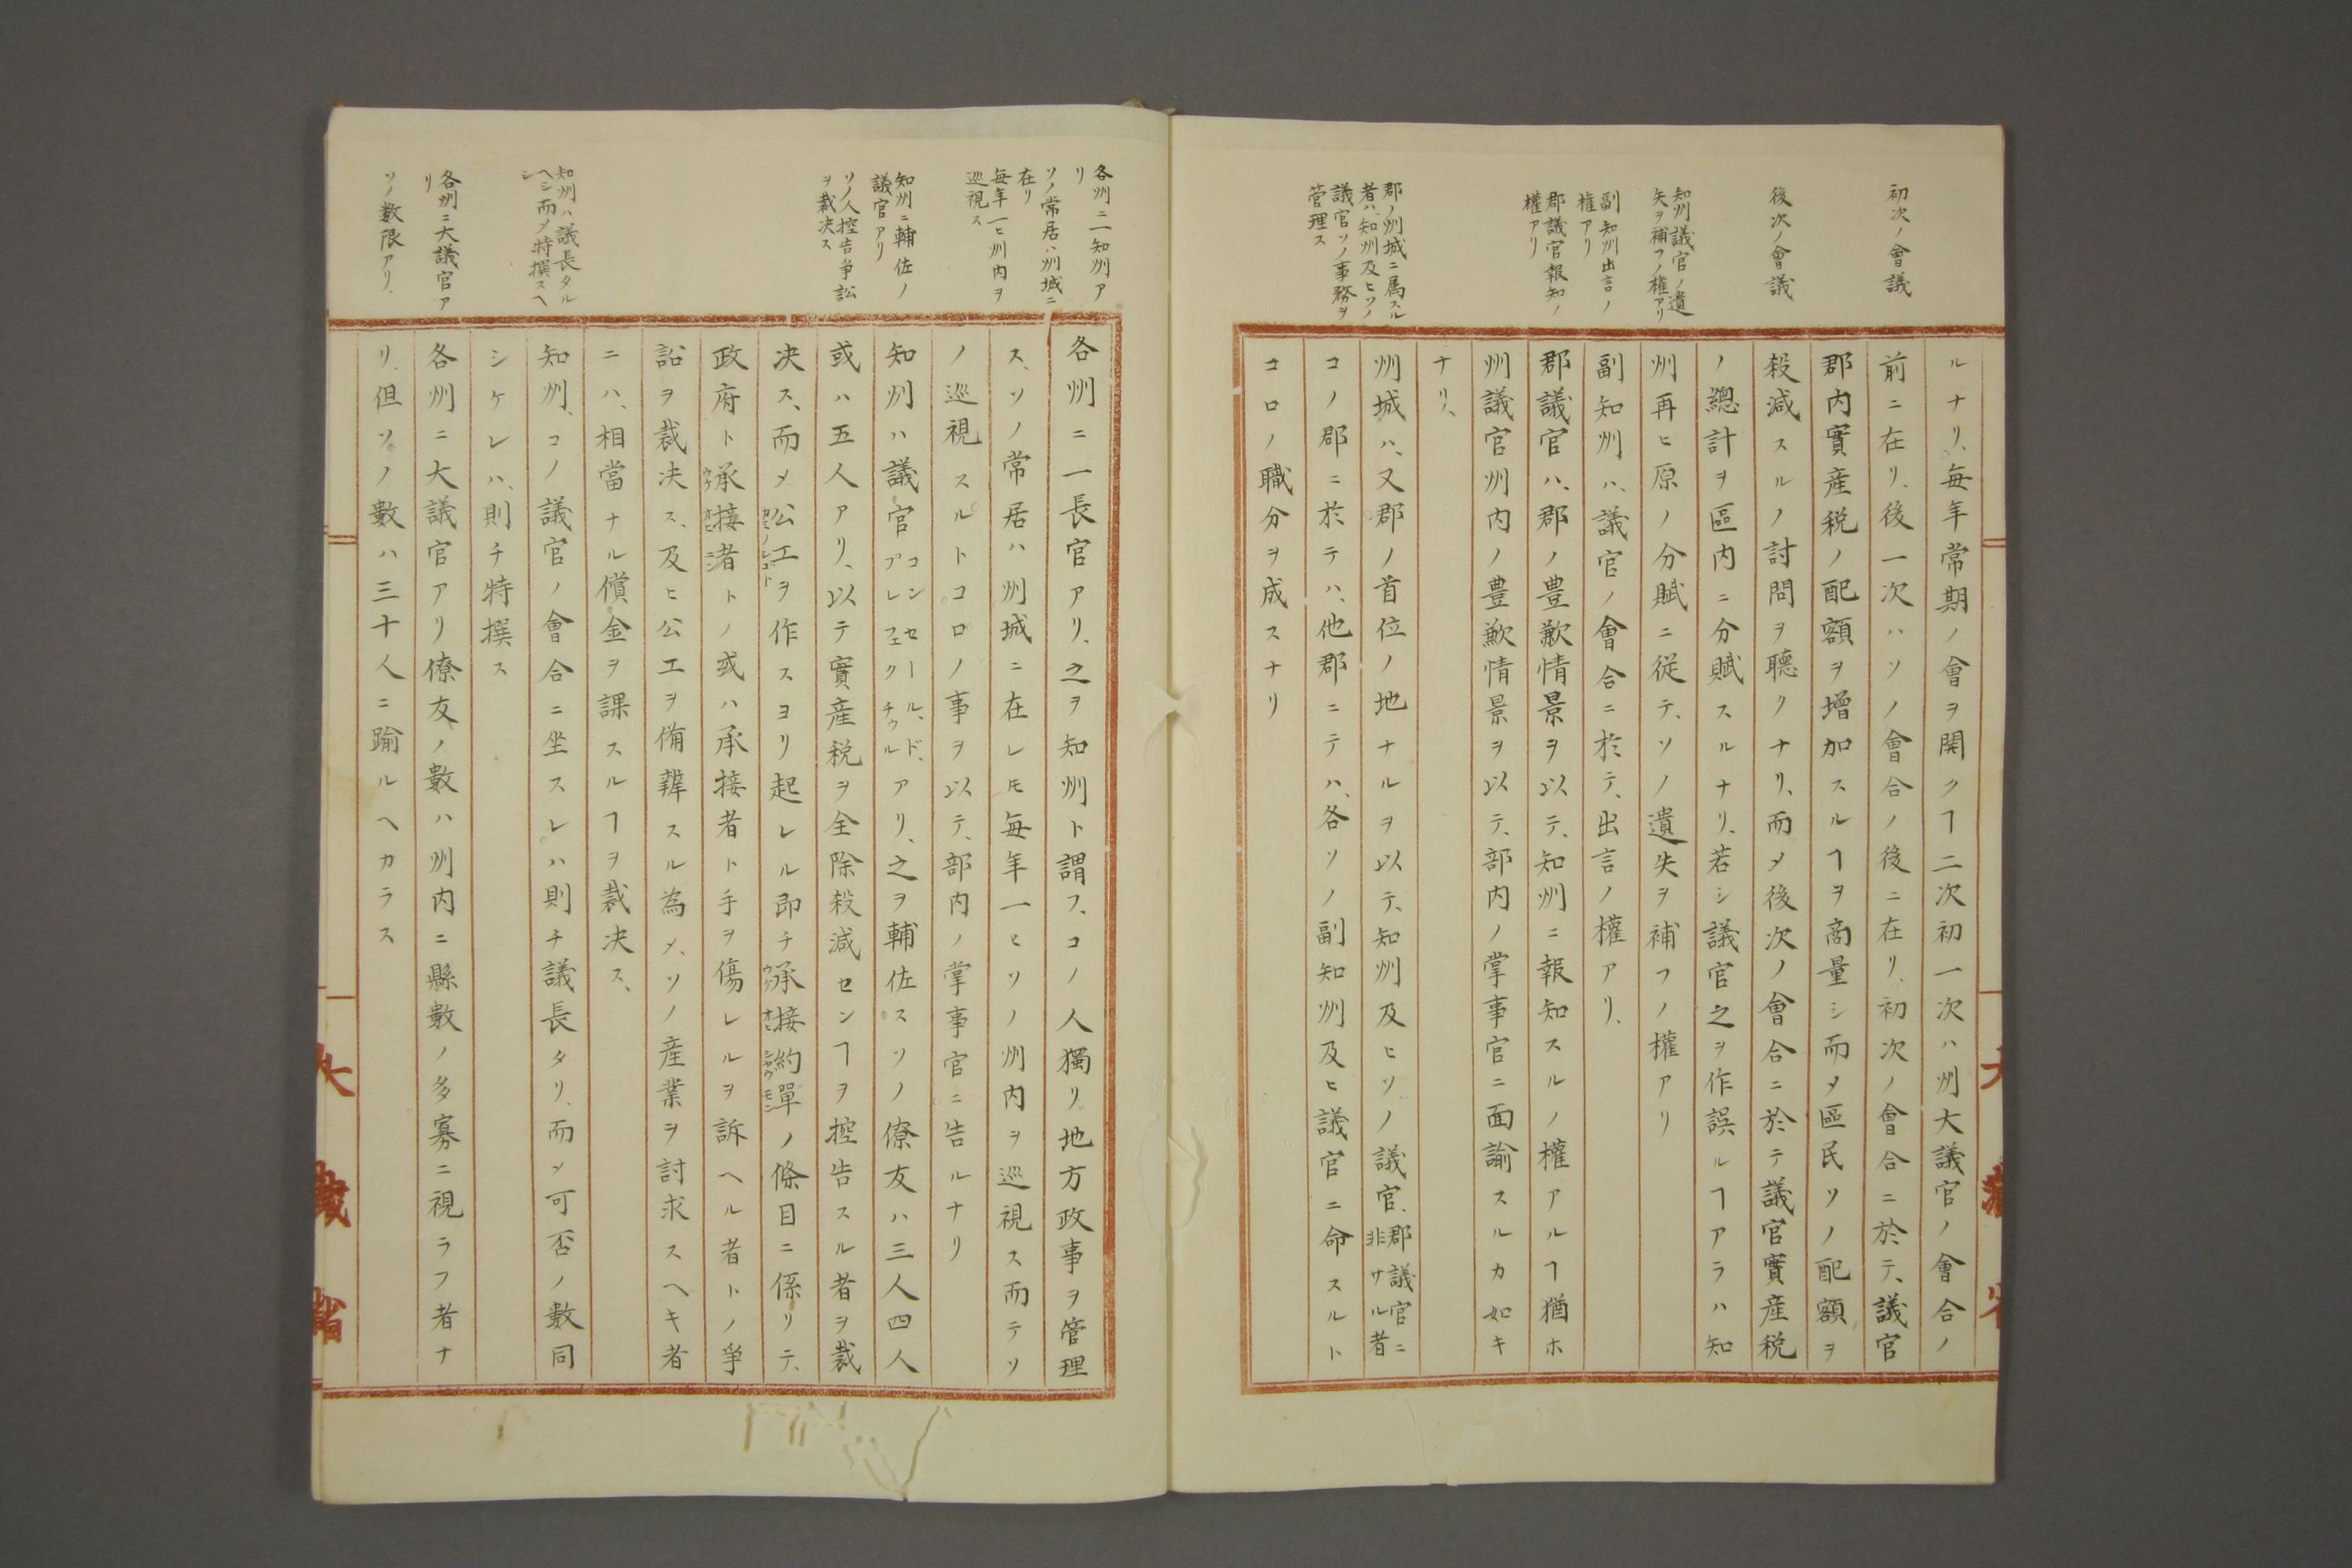 初次ノ會議
後次ノ會議
知州議官ノ遺
失ヲ補フノ権アリ
副知州出言ノ
権アリ
郡議官報知ノ
權アリ
郡ノ州城ニ属スル
者ハ、知州及ヒソノ
議官ソノ事務ヲ
管理ス
ルナリ、毎年常期ノ會ヲ開クヿ二次初一次ハ州大議官ノ會合ノ
前ニ在リ、後一次ハソノ會合ノ後ニ在リ、初次ノ會合ニ於テ、議官
郡内實産税ノ配額ヲ増加スルヿヲ商量シ而メ區民ソノ配額ヲ
殺減スルノ討問ヲ聽クナリ、而メ後次ノ會合ニ於テ議官實産税
ノ總計ヲ區内ニ分賦スルナリ、若シ議官之ヲ作誤ルヿアラハ知
州再ヒ原ノ分賦ニ従テ、ソノ遺失ヲ補フノ權アリ
副知州ハ、議官ノ會合ニ於テ、出言ノ權アリ、
郡議官ハ、郡ノ豊歉情景ヲ以テ、知州ニ報知スルノ權アルヿ猶ホ
州議官州内ノ豊歉情景ヲ以テ、部内ノ掌事官ニ面諭スルカ如キ
ナリ、
州城ハ、又郡ノ首位ノ地ナルヲ以テ、知州及ヒソノ議官、郡議官ニ
非サル者
コノ郡ニ於テハ、他郡ニテハ、各ソノ副知州及ヒ議官ニ命スルト
コロノ職分ヲ成スナリ
大藏省
各州ニ一知州ア
リ
ソノ常居ハ州城ニ
在リ
毎年一ヒ州内ヲ
巡視ス
知州ニ輔佐ノ
議官アリ
ソノ人控告争訟
ヲ裁决ス
知州ハ議長タル
ヘシ而メ特撰スヘ
シ
各州ニ大議官ア
リ
ソノ数限アリ、
各州ニ一長官アリ、之ヲ知州ト謂フ、コノ人獨リ地方政事ヲ管理
ス、ソノ常居ハ州城ニ在レ𪜈毎年一ヒソノ州内ヲ巡視ス而テソ
ノ巡視スルトコロノ事ヲ以テ、部内ノ掌事官ニ告ルナリ
知州ハ議官コンセール、ド、
プレフェクチゥルアリ、之ヲ輔佐スソノ僚友ハ三人四人
或ハ五人アリ、以テ實産税ヲ全除殺減センヿヲ控告スル者ヲ裁
决ス、而メ公工ヲ作スヨリ起レル即チ承接約單ノ條目ニ係リテ、
政府ト承接者トノ或ハ承接者ト手ヲ傷レルヲ訴ヘル者トノ爭
訟ヲ裁决ス、及ヒ公工ヲ備辨スル為メ、ソノ産業ヲ討求スヘキ者
ニハ、相當ナル償金ヲ課スルヿヲ裁决ス、
知州、コノ議官ノ會合ニ坐スレハ則チ議長タリ、而メ可否ノ數同
シケレハ、則チ特撰ス
各州ニ大議官アリ僚友ノ數ハ州内ニ縣數ノ多寡ニ視ラフ者ナ
リ、但ソノ數ハ三十人ニ踰ルヘカラス
大藏省